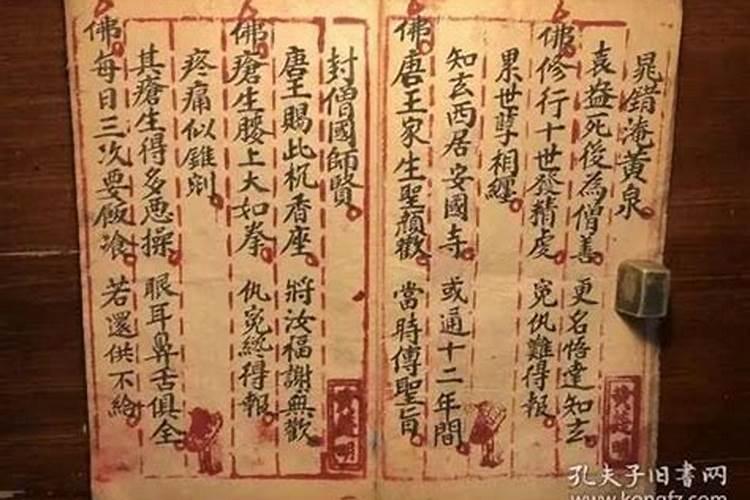 晁錯淹黃泉
袁益死後為僧善 更名悟達知玄
佛修行十世發精虔 冤仇難得報
累世孽相纏
知玄西居安國寺 或通十二年間
佛唐王家生聖顏歡 當時傳聖旨
封僧國師賢
唐王賜此杌香座 將汝福謝無歡
佛瘡生膝上大如拳 仇冤總得報
疼痛似錐剜
其瘡生得多惡操 眼耳鼻舌俱全
佛每日三次要飯飡 若還供不給
孔夫子旧书网